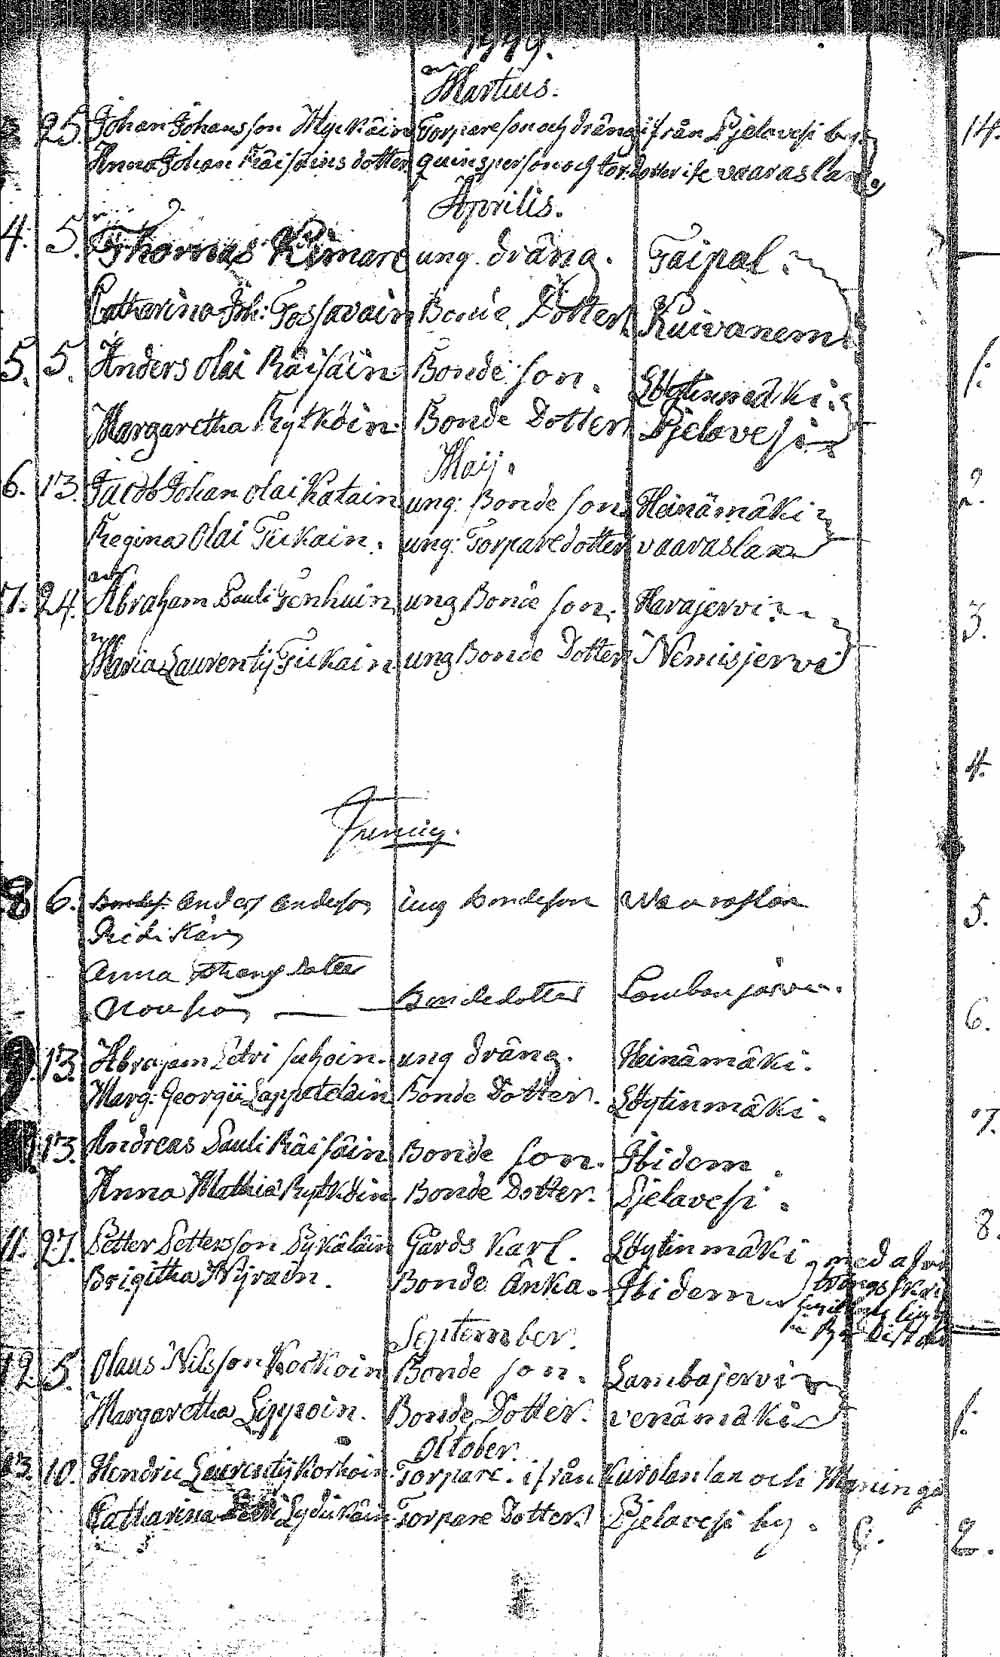 1779.
Martius.
25. Johan Johansson Myckäin Torpare son och dräng ifrån Pjelavesi by.
Anna Johan Räisäins dotter quinsperson och tor: dotter if: vaaraslax
Aprilis.
4. 5. Thomas Kimare ung dräng. Taipal.
Catharina Joh: Tossavain Bonde Dotter Kuivanemi
5. 5. Anders Olai Räisäin Bonde son. Löytinmäki.
Margaretha Rytköin Bonde Dotter Pjelavesi
Maij.
6. 13. Jacob Johan Olai Katain ung: Bonde son Heinämäki
Regina Olai Tickain. ung: Torpare dotter vaaraslax
7. 24. Abraham Pauli Tenhuin ung Bonde son. Havajervi
Maria Laurentij Tickain ung Bonde Dotter Nemisjervi
8 6. Anders Andersson ung bondeson Waaraslax
Anna dotter
Nousia bondedotter Lambanjärvi.
13. Abrajam Petri suhoin. ung dräng. Heinämäki.
Marg: Georgii Lappetelain Bonde Dotter. Löytinmäki.
13. Andreas Pauli Räisäin Bonde son. Ibidem.
Anna Mathia Rytköin. Bonde Dotter. Pjelavesi.
11. 27. Petter Pettersson Pykäläin Gårds karl. Löytinmäki
Brigitha Nyrain. Bonde Änka. Ibidem
September.
12. 5. Olaus Nilsson Korkoin Bonde son. Lambajervi
Margaretha Lippoin. Bonde Dotter. venämäki
October.
13. 10. Hendric Laurentij Korhoin. Torpare. ifrån Kurolanlax och Maninga
Catharina Petri Lydickäin Torpare Dotter. Pjelavesi by.
14.
1.
2.
3.
4.
5.
6.
7.
8.
1.
2.